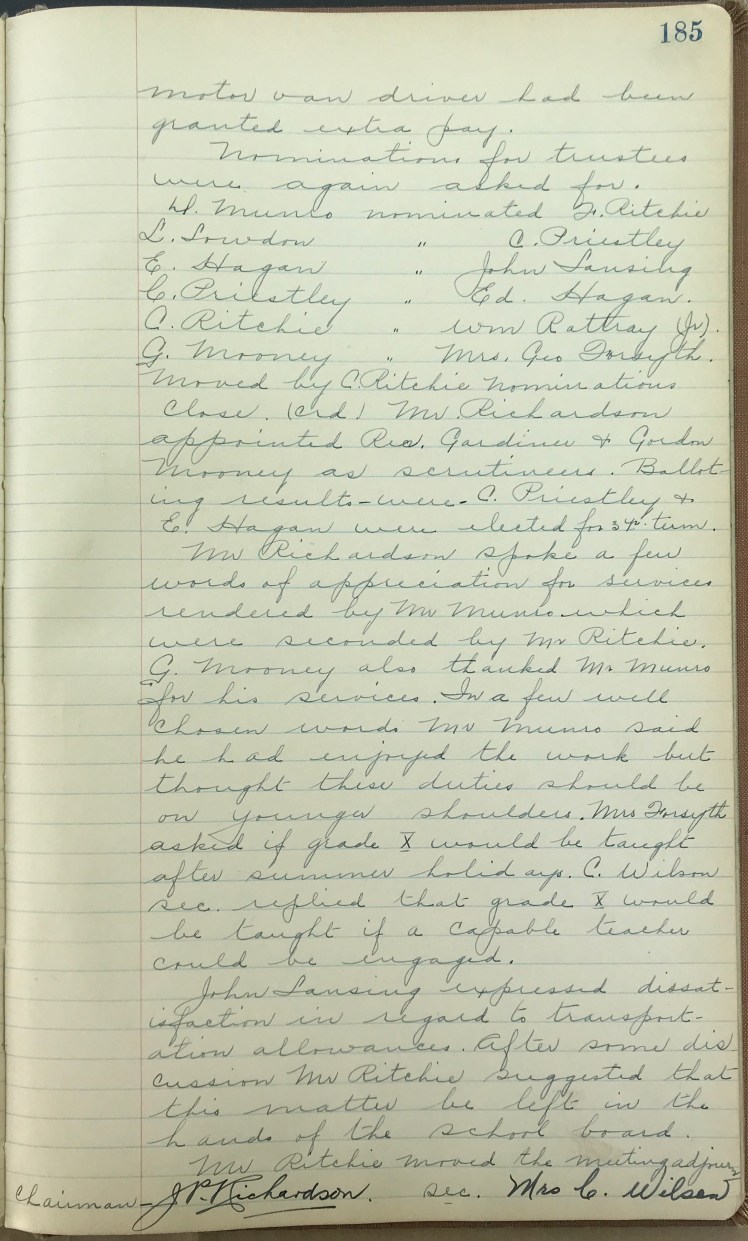 185
motor van driver had been
granted extra pay.
Nominations for trustees
were again asked for.
D. Munro nominated F. Ritchie
L. Lowdon " C. Priestley
E. Hagan " John Lansing
C. Priestley " Ed. Hagan.
C. Ritchie " Wm Rattray (Jr).
G. Mooney " Mrs. Geo Forsyth.
Moved by C. Ritchie nominations
close. (crd.) Mr. Richardson
appointed Rev. Gardiner & Gordon
Mooney as scrutineers. Ballot-
ing results - were - C. Priestley &
E. Hagan were elected for 3 yr. term.
Mr Richardson spoke a few
words of appreciation for services
rendered by Mr Munro which
were seconded by Mr Ritchie.
G. Mooney also thanked Mr Munro
for his services. In a few well
chosen words Mr Munro said
he had enjoyed the work but
thought these duties should be
on younger shoulders. Mrs Forsyth
asked if grade X would be taught
after summer holidays. C. Wilson
sec. replied that grade X would
be taught if a capable teacher
could be engaged.
John Lansing expressed dissat-
isfaction in regard to transport-
ation allowances. After some dis-
cussion Mr Ritchie suggested that
this matter be left in the
hands of the school board.
Mr Ritchie moved the meeting adjourn
Chairman - J.P. Richardson. sec. Mrs C. Wilson